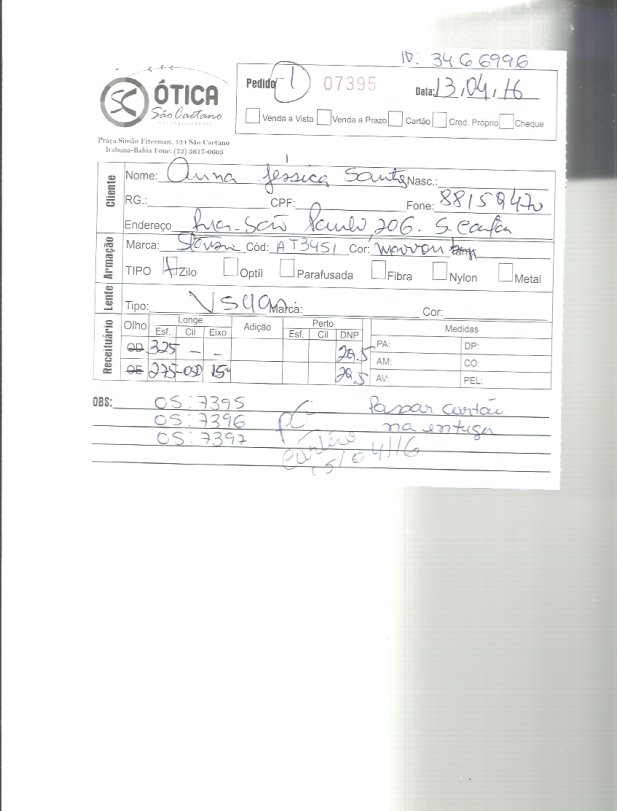 ID: 3466996
SC ÓTICA
São Caetano
Pedido 1 07395 Data: 13.04.16
Venda a Vista Venda a Prazo Cartão Cred. Próprio Cheque
Praça Simão Fiterman, 124 São Caetano
Itabuna-Bahia Fone: (73) 3617-0603
Cliente
Nome: Anna Jessica Santos Nasc.:
RG.: CPF: Fone: 88159470
Endereço Rua São Paulo, 206. S.
Armação
Marca: Cód: AT3451 Cor: marrom
TIPO Zilo Optil Parafusada Fibra Nylon Metal
Lente
Tipo: Marca: Cor:
Receituário
Olho Longe Adição Perto Medidas
Esf. Cil Eixo Esf. Cil DNP
OD 325 - - 29.5 PA: DP:
AM: CO:
OE 275 -050 15° 29.5 AV: PEL:
OBS: OS: 7395 Passar cartão
OS: 7396 na entrega
OS: 7397
15/04/16